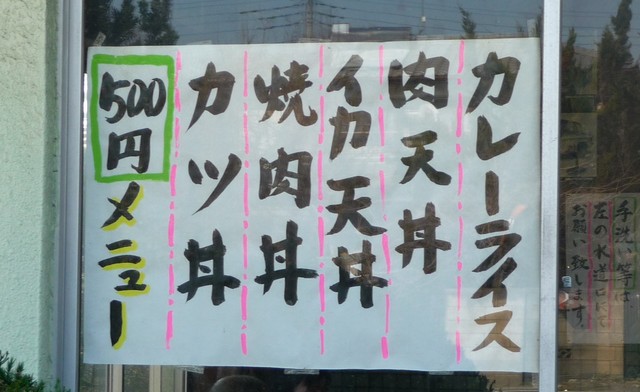 カレーライス
肉天丼
イカ天丼
焼肉丼
カツ丼
500円メニュー
手洗い等は
左の水道にて
お願い致します。